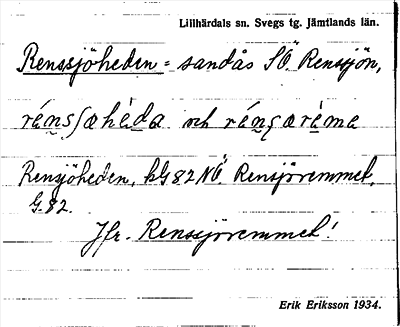 Lillhärdals sn. Svegs tg. Jämtlands län.
Renssjöheden = sandås SÖ. Renssjön,
och
Rensjöheden, hG82NÖ. Rensjöremmet,
G.82.
Jfr. Renssjöremmet!
Erik Eriksson 1934.